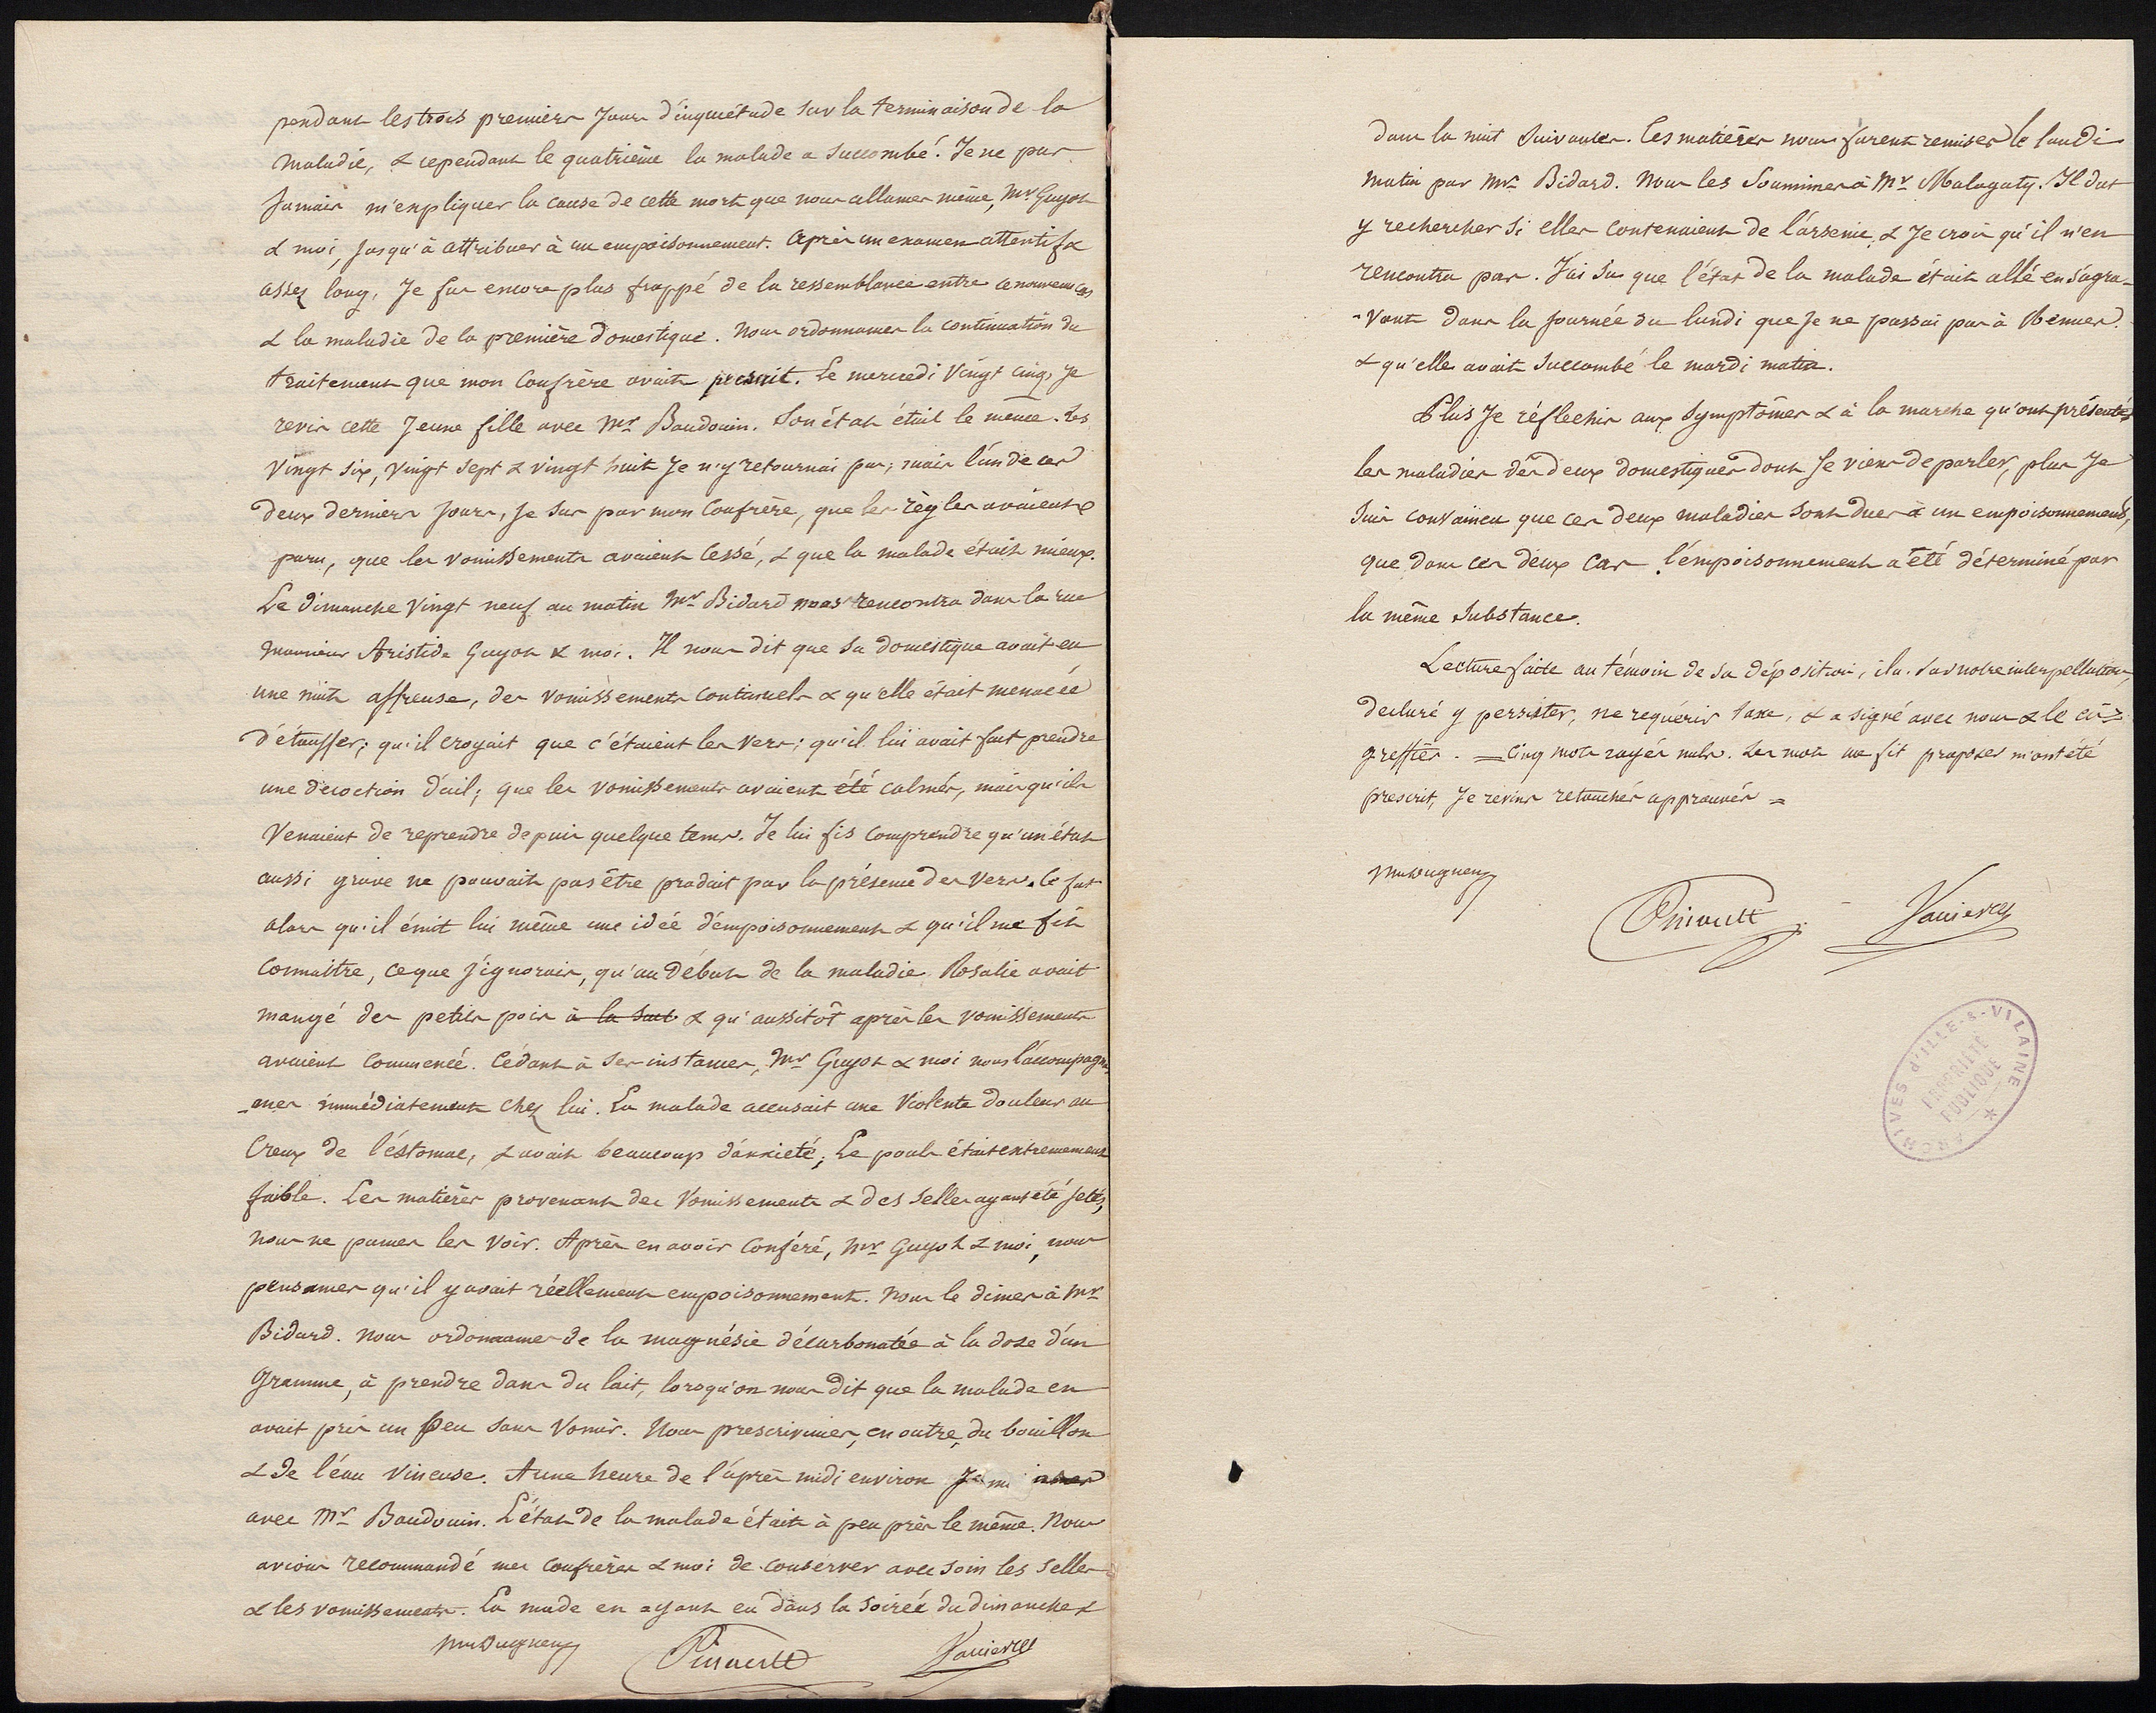 pendant les trois premiers Jours d'inquiétude sur la terminaison de la
maladie, & cependant le quatrième la malade a succombé. Je ne pus
Jamais m'expliquer la cause de cette mort que nous allames même, Mr Guyot
& moi, Jusqu'à attribuer à un empoisonnement. Après un examen attentif &
assez long, Je fus encore plus frappé de la ressemblance entre ce nouveau cas
& la maladie de la première domestique. Nous ordonnames la continuation du
traitement que mon Confrère avait prescrit. Le mercredi Vingt cinq, Je
revis cette Jeune fille avec Mr Baudouin. Son état était le même. Les
Vingt six, Vingt sept & vingt huit Je n'y retournai pas; mais l'un de ces
deux derniers jours, Je sus par mon Confrère, que les règles avaient
paru, que les vomissements avaient cessé, & que la malade était mieux.
Le dimanche Vingt neuf au matin Mr Bidard nous rencontra dans la rue
Monsieur Aristide Guyot & moi. Il nous dit que sa domestique avait eu
une nuit affreuse, des vomissements continuels & qu'elle était menacée
d'étouffer; qu'il croyait que c'étaient les vers; qu'il lui avait fait prendre
une décoction d'ail; que les vomissements avaient été calmés, mais qu'ils
Venaient de reprendre depuis quelque tems. Je lui fis comprendre qu'un état
aussi grave ne pouvait pas être produit par la présence des vers. Ce fut
alors qu'il émit lui même une idée d'empoisonnement & qu'il me fit
connaitre, ce que j'ignorais, qu'au début de la maladie Rosalie avait
mangé des petits pois à la suit & qu'aussitôt après les vomissements
avaient commencé. Cédant à ses instances, Mr Guyot & moi nous l'accompagna-
-mes immédiatement chez lui. La malade accusait une Violente douleur au
Creux de l'éstomac, & avait beaucoup d'anxieté; Le pouls était extremement
faible. Les matières provenant des Vomissements & des selles ayant été jetés,
nous ne pumes les voir. Après en avoir conféré, Mr Guyot & moi, nous
pensames qu'il y avait réellement empoisonnement. Nous le dimes à Mr
Bidard. Nous ordonnames de la magnésie décarbonatée à la dose d'un
Gramme, à prendre dans du lait, lorsqu'on nous dit que la malade en
avait pris un peu sans Vomir. Nous prescrivimes, en outre, du bouillon
& de l'éau vineuse. A une heure de l'après midi environ Je
avec Mr Baudouin. L'état de la malade était à peu près le même. Nous
avions recommandé mes confrères & moi de conserver avec soin les selles
& les vomissements. La made en ayant eu dans la soirée du dimanche &
Pinault
dans la nuit suivantes. Les matières nous furent remises le lundi
matin par Mr Bidard. Nous les Soumimes à Mr Malagaty. Il dut
y rechercher si elles contenaient de l'arsenic, & Je crois qu'il n'en
rencontra pas. J'ai su que l'état de la malade était allé en s'agra-
-vant dans la journée du lundi que Je ne passai pas à Rennes
& qu'elle avait succombé le mardi matin.
Plus Je réflechis aux symptômes & à la marche qu'ont présentés
les maladies des deux domestiques dont Je viens de parler, plus Je
suis convaincu que ces deux maladies sont dues à un empoisonnement,
que dans ces deux cas l'émpoisonnement a été déterminé par
la même substance.
Lecture faite au témoin de sa déposition, il a, sur notre interpellation,
declaré y persister, ne requérir taxe, & a signé avec nous & le
greffier. = Cinq mots rayés nuls. Les mots me fit proposer m'ont été
prescrit, Je revins retouchés approuvés =
Pinault
ARCHIVES D'ILLE-&-VILAINE
PROPRIÉTÉ
PUBLIQUE